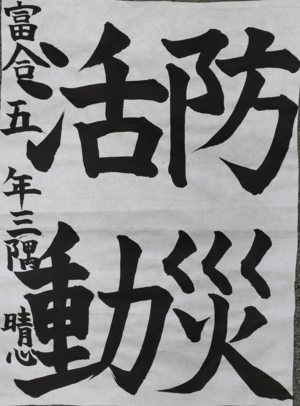 防災
活動
富合五年三隅晴心